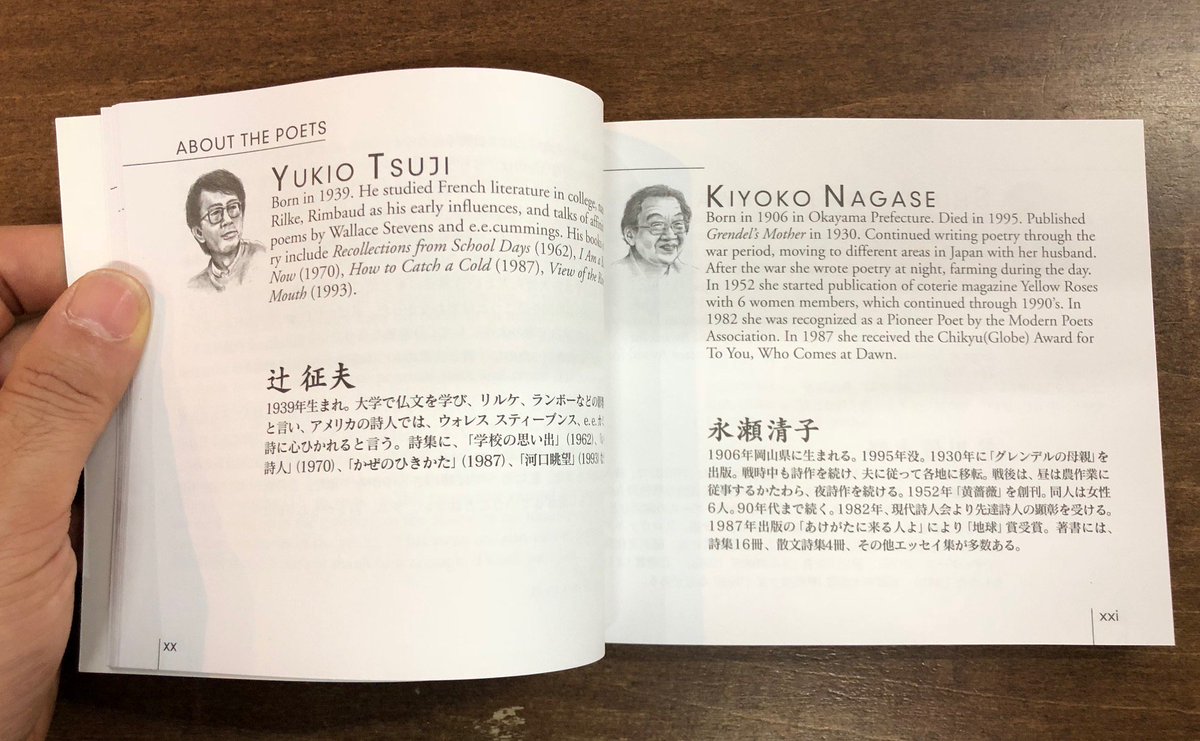 ABOUT THE POETS
YUKIO TSUJI
Born in 1939. He studied French literature in college,
Rilke, Rimbaud as his early influences, and talks of
poems by Wallace Stevens and e.e.cummings. His
ry include Recollections from School Days (1962), I Am a
Now (1970), How to Catch a Cold (1987), View of the
Mouth (1993).
辻 征夫
1939年生まれ。大学で仏文を学び、リルケ、ランボーなどの
と言い、アメリカの詩人では、ウォレス スティーブンス、e.e.
詩に心ひかれると言う。詩集に、「学校の思い出」(1962)、
詩人」(1970)、「かぜのひきかた」(1987)、「河口眺望」(1993)
xx
KIYOKO NAGASE
Born in 1906 in Okayama Prefecture. Died in 1995. Published
Grendel's Mother in 1930. Continued writing poetry through the
war period, moving to different areas in Japan with her husband.
After the war she wrote poetry at night, farming during the day.
In 1952 she started publication of coterie magazine Yellow Roses
with 6 women members, which continued through 1990's. In
1982 she was recognized as a Pioneer Poet by the Modern Poets
Association. In 1987 she received the Chikyu(Globe) Award for
To You, Who Comes at Dawn.
永瀬清子
1906年岡山県に生まれる。1995年没。1930年に「グレンデルの母親」を
出版。戦時中も詩作を続け、夫に従って各地に移転。戦後は、昼は農作業に
従事するかたわら、夜詩作を続ける。1952年「黄薔薇」を創刊。同人は女性
6人。90年代まで続く。1982年、現代詩人会より先達詩人の顕彰を受ける。
1987年出版の「あけがたに来る人よ」により「地球」賞受賞。著書には、
詩集16冊、散文詩集4冊、その他エッセイ集が多数ある。
xxi